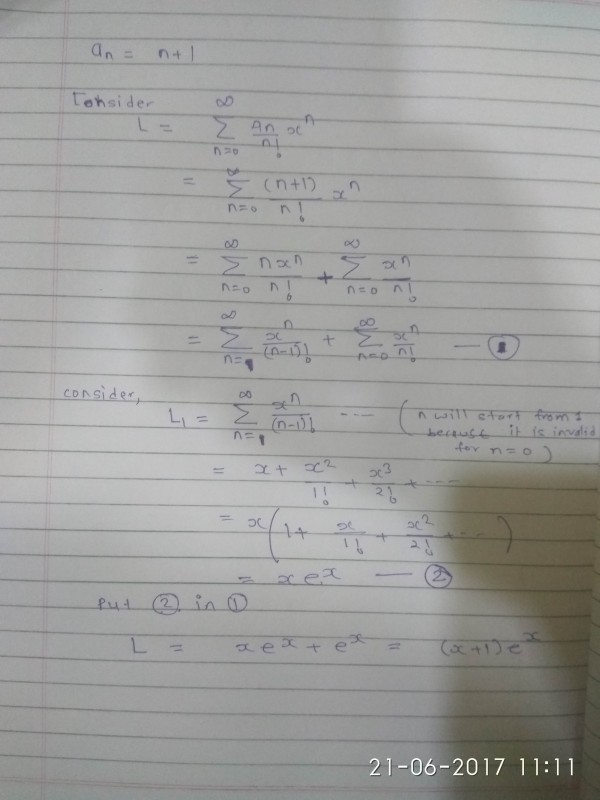 aₙ = n+1
Consider
L = ∑_{n=0}^{∞} aₙ/n! xⁿ
= ∑_{n=0}^{∞} (n+1)/n! xⁿ
= ∑_{n=0}^{∞} n xⁿ/n! + ∑_{n=0}^{∞} xⁿ/n!
= ∑_{n=1}^{∞} xⁿ/(n-1)! + ∑_{n=0}^{∞} xⁿ/n! — ①
consider,
L₁ = ∑_{n=1}^{∞} xⁿ/(n-1)! ---- ( n will start from 1
because it is invalid
for n=0 )
= x + x²/1! + x³/2! + ----
= x ( 1 + x/1! + x²/2! + --- )
= x eˣ — ②
put ② in ①
L = x eˣ + eˣ = (x+1) eˣ
21-06-2017 11:11